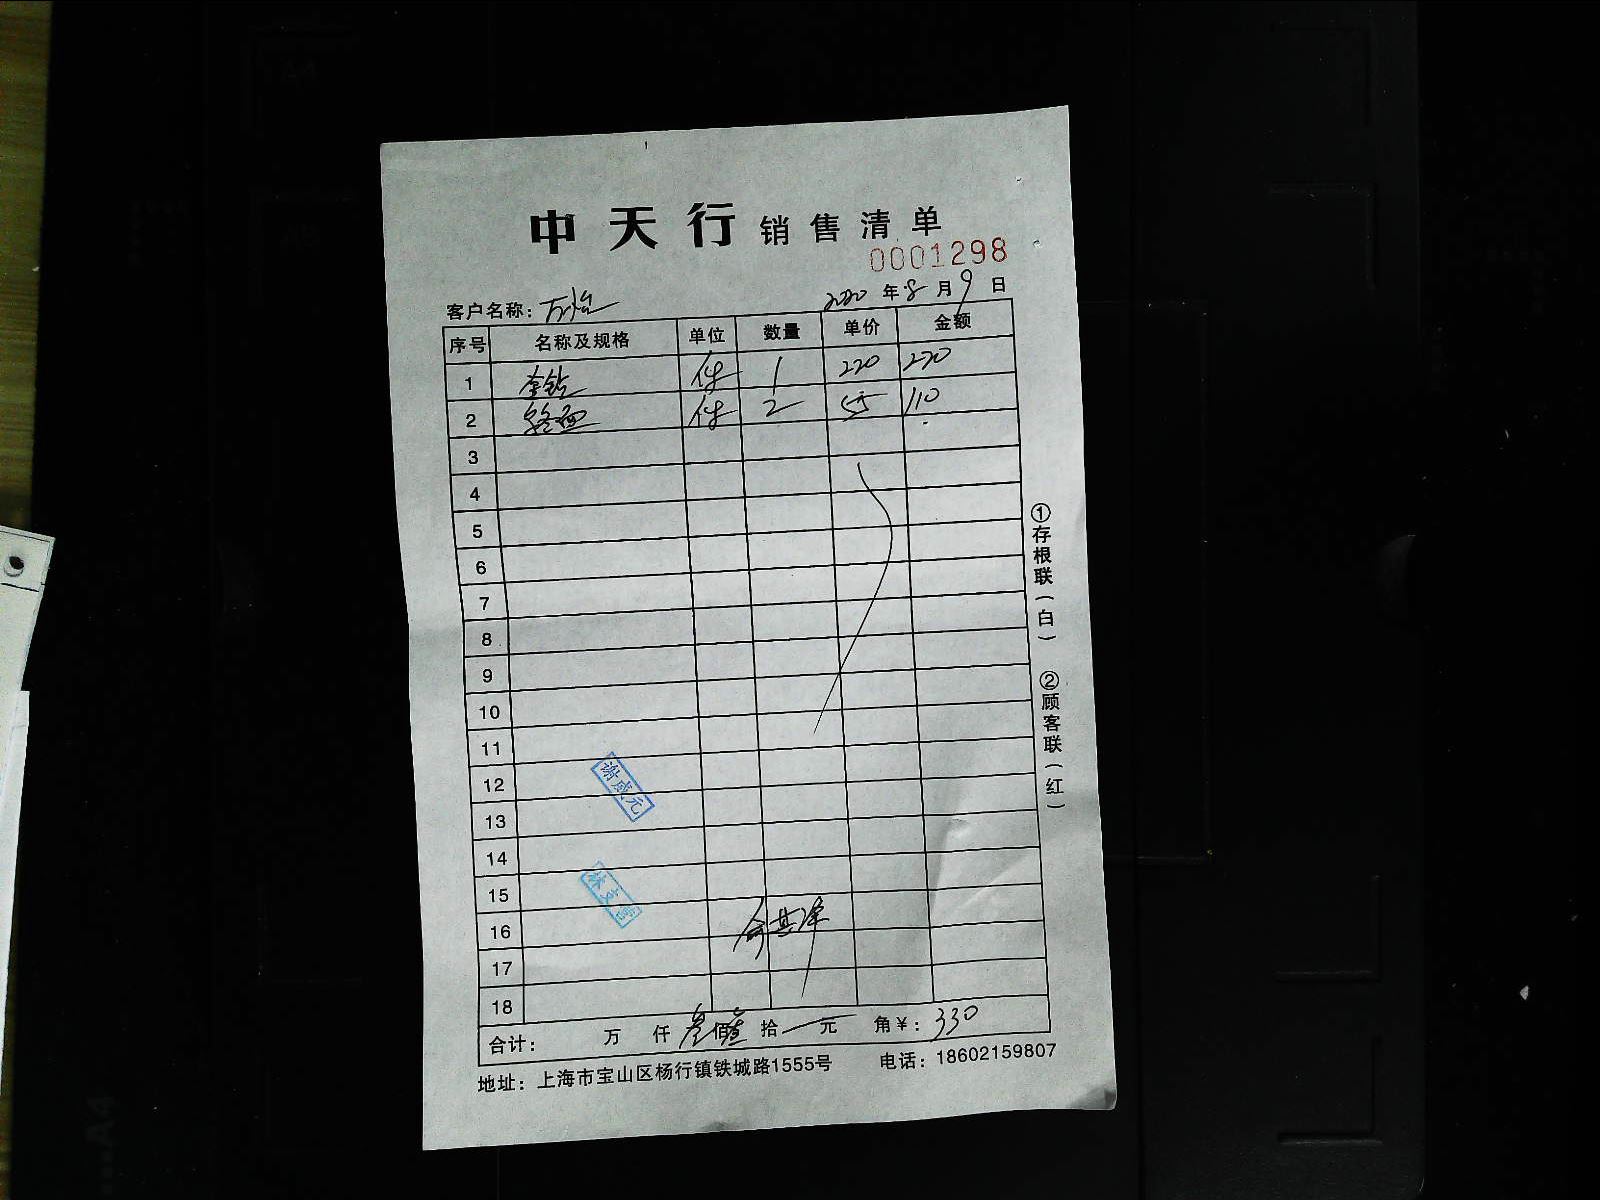 中天行 销售清单
0001298
客户名称: 万怡 2020 年 8 月 9 日
序号 名称及规格 单位 数量 单价 金额
1 件 1 220 220
2 件 2 55 110
3
4
5
6
7
8
9
10
11
12 谢成元
13
14
15 林文
16 俞其泽
17
18
合计: 万 仟 叁佰 拾 元 角 ¥: 330
地址: 上海市宝山区杨行镇铁城路1555号 电话: 18602159807
①存根联(白) ②顾客联(红)
A4